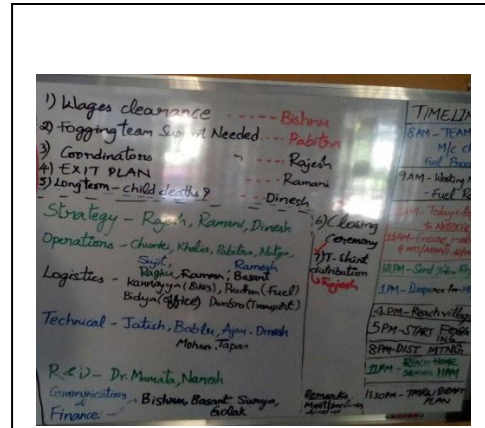 1) Wages clearance ----- Bishnu
2) Fogging team Support Needed ---- Pabitra
3) Coordinators " - Rajesh
4) EXIT PLAN - Ramani
5) Long term - child deaths? - Dinesh
Strategy - Rajesh, Ramani, Dinesh
Operations - Chunku, Khalia, Pabitra,
Sujit, Ramesh
Logistics - Raghu, Raman, Basant
Kannayya (Bikes), Pradhan (Fuel)
Bidya (office) (Transport)
Technical - Jatish, Bablu, Ajan - Dinesh
Mohan, Tapas
R & D - Dr. Mamata, Naresh
Communication &
Finance - Bishnu, Basant Surya,
Golak
6) Closing
Ceremony
7) T-shirt
distribution
Rajesh
Remarks
TIMELIN
8AM - TEAM
M/c
Fuel
9AM - Working
- Fuel
11AM -
12PM - Send
1PM -
4PM - Reach village
5PM - START FOGG
ING
8PM - DIST MTNG
11PM - REACH HOME
11:30PM - DRAFT
PLAN